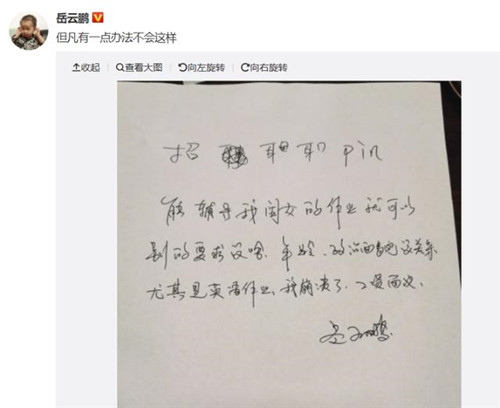 岳云鹏
但凡有一点办法不会这样
收起 查看大图 向左旋转 向右旋转
招 Pin
能辅导我闺女的作业就可以
别的要求没啥.年龄、政治面貌没关系
尤其是英语作业,我崩溃了.工资面议.
岳云鹏